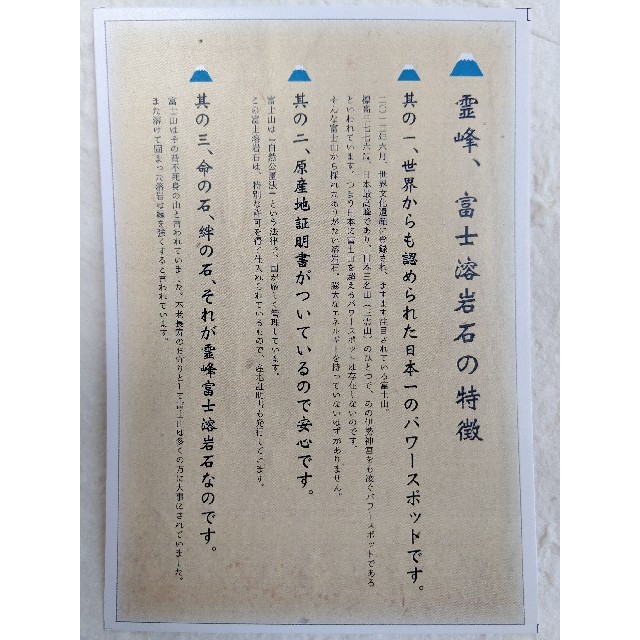 霊峰、富士溶岩石の特徴
其の一、世界からも認められた日本一のパワースポットです。
二〇一三年六月、世界文化遺産に登録され、ますます注目されている富士山。
標高三七七六m、日本最高峰であり、日本三名山（三霊山）のひとつで、あの伊勢神宮をも凌ぐパワースポットである
といわれています。つまり日本に富士山を超えるパワースポットは存在しないのです。
そんな富士山から採れたありがたい溶岩石。膨大なエネルギーを持っていないはずがありません。
其の二、原産地証明書がついているので安心です。
富士山は「自然公園法」という法律で、国が厳しく管理しています。
この富士溶岩石は、特別な許可を得て仕入れられているもので、産地証明書も発行しています。
其の三、命の石、絆の石、それが霊峰富士溶岩石なのです。
富士山はその昔不死身の山と言われていました。不老長寿のお守りとして富士山は多くの方に大事にされていました。
また溶けて固まった溶岩は縁を強くすると言われています。